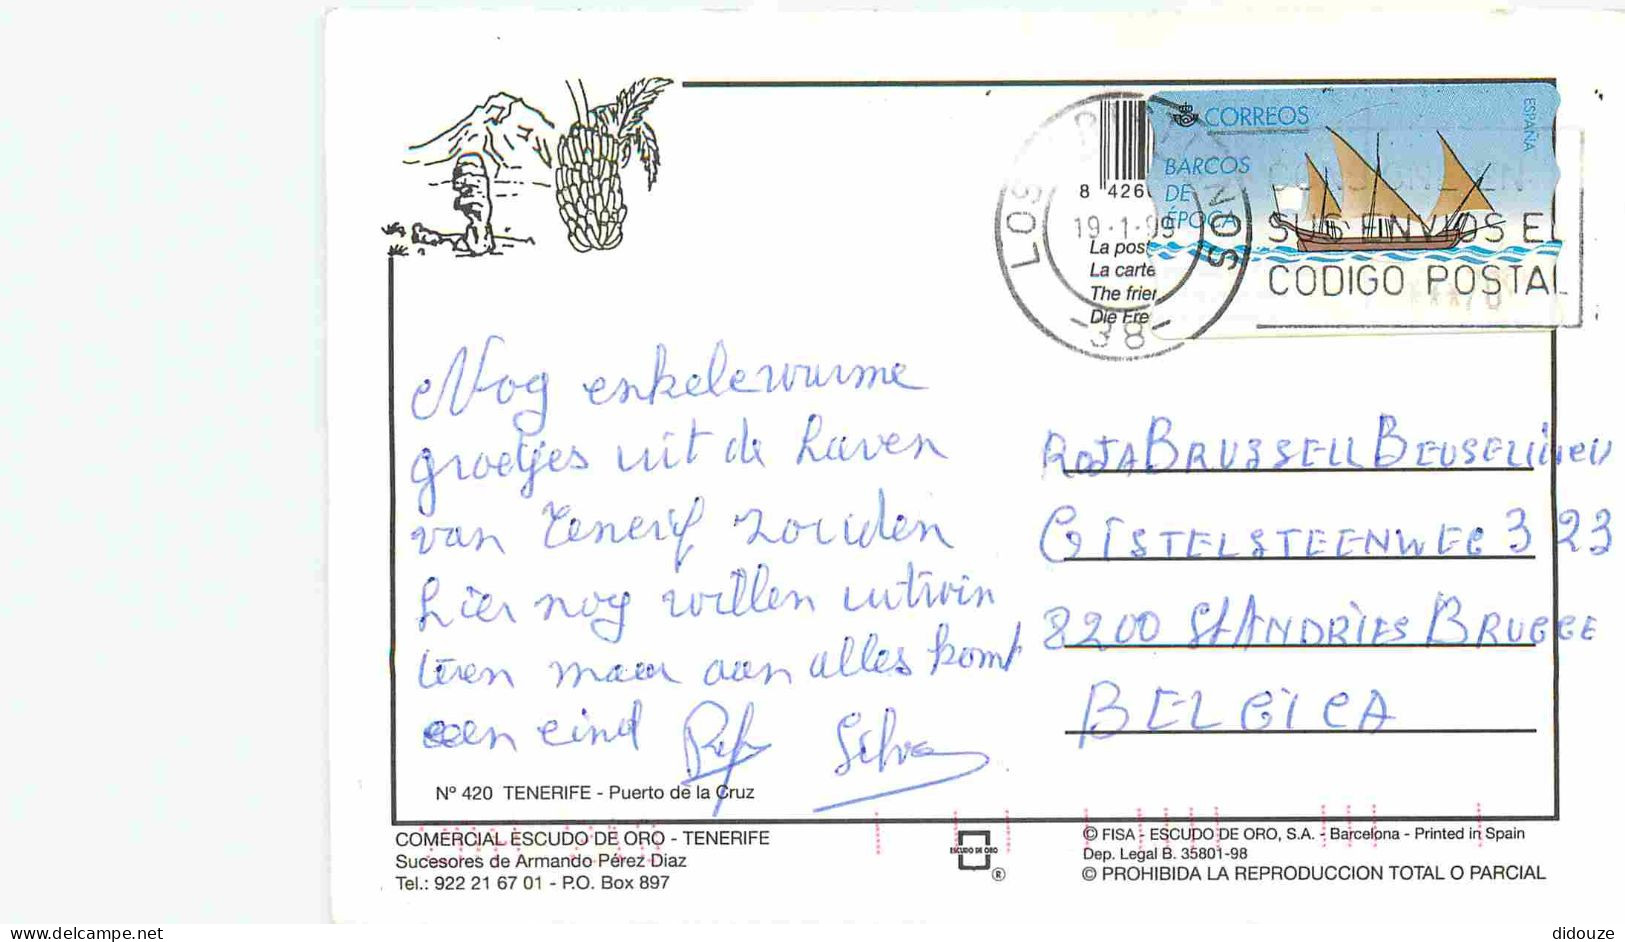 CORREOS
ESPAÑA
BARCOS
DE
ÉPOCA
8 426
LOS
19-1-99
38
La pos
La carte
The frien
Die Fre
SUS ENVIOS EL
CODIGO POSTAL
Nog enkele warme
groetjes uit de haven
van Tenerif zouden
hier nog willen
maar aan alles komt
een eind
Silva
BRUSSELL
GISTELSTEENWEG 323
8200 St ANDRIES BRUGGE
BELGICA
Nº 420 TENERIFE - Puerto de la Cruz
COMERCIAL ESCUDO DE ORO - TENERIFE
Sucesores de Armando Pérez Diaz
Tel.: 922 21 67 01 - P.O. Box 897
ESCUDO DE ORO
®
© FISA - ESCUDO DE ORO, S.A. - Barcelona - Printed in Spain
Dep. Legal B. 35801-98
© PROHIBIDA LA REPRODUCCION TOTAL O PARCIAL
www.delcampe.net
didouze